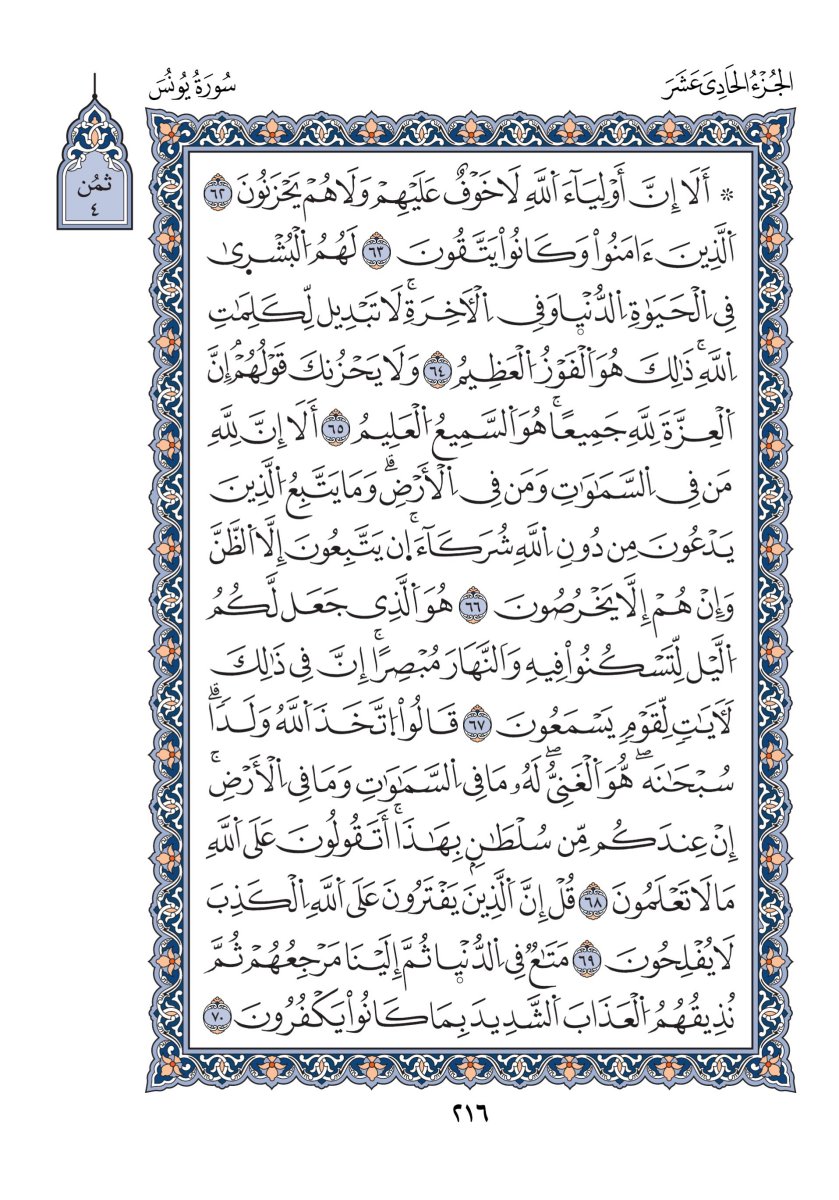 الجُزْءُ الحَادِىَ عَشَرَ
سُورَةُ يُونُسَ
ثمُن
٤
۞ أَلَآ إِنَّ أَوْلِيَآءَ اَ۬للَّهِ لَا خَوْفٌ عَلَيْهِمْ وَلَا هُمْ يَحْزَنُونَ ٦٢
اَ۬لَّذِينَ ءَامَنُواْ وَكَانُواْ يَتَّقُونَ ٦٣ لَهُمُ اُ۬لْبُشْر۪يٰ
فِے اِ۬لْحَيَوٰةِ اِ۬لدُّنْي۪ا وَفِے اِ۬لْأٓخِرَةِۚ لَا تَبْدِيل لِّكَلِمَٰتِ
اِ۬للَّهِۚ ذَٰلِكَ هُوَ اَ۬لْفَوْزُ اُ۬لْعَظِيمُ ٦٤ وَلَا يَحْزُنكَ قَوْلُهُمُۥٓ إِنَّ
اَ۬لْعِزَّةَ لِلَّهِ جَمِيعًاۚ هُوَ اَ۬لسَّمِيعُ اُ۬لْعَلِيمُ ٦٥ أَلَآ إِنَّ لِلَّهِ
مَن فِے اِ۬لسَّمَٰوَٰتِ وَمَن فِے اِ۬لْأَرْضِۗ وَمَا يَتَّبِعُ اُ۬لَّذِينَ
يَدْعُونَ مِن دُونِ اِ۬للَّهِ شُرَكَآءَۚ ا۪ن يَتَّبِعُونَ إِلَّا اَ۬لظَّنَّ
وَإِنْ هُمْ إِلَّا يَخْرُصُونَ ٦٦ هُوَ اَ۬لَّذِے جَعَل لَّكُمُ
اُ۬لَّيْل لِّتَسْكُنُواْ فِيهِ وَالنَّهَارَ مُبْصِرًاۚ إِنَّ فِے ذَٰلِكَ
لَأٓيَٰتٍ لِّقَوْمٍ يَسْمَعُونَ ٦٧ قَالُواْ اُ۪تَّخَذَ اَ۬للَّهُ وَلَدًاۗ
سُبْحَٰنَه هُّوَ اَ۬لْغَنِيُّ لَهُۥ مَا فِے اِ۬لسَّمَٰوَٰتِ وَمَا فِے اِ۬لْأَرْضِۚ
إِنْ عِندَكُم مِّن سُلْطَٰنٍ بِهَٰذَآۚ أَتَقُولُونَ عَلَى اَ۬للَّهِ
مَا لَا تَعْلَمُونَ ٦٨ قُلْ إِنَّ اَ۬لَّذِينَ يَفْتَرُونَ عَلَى اَ۬للَّهِ اِ۬لْكَذِبَ
لَا يُفْلِحُونَ ٦٩ مَتَٰعٌ فِے اِ۬لدُّنْي۪ا ثُمَّ إِلَيْنَا مَرْجِعُهُمْ ثُمَّ
نُذِيقُهُمُ اُ۬لْعَذَابَ اَ۬لشَّدِيدَ بِمَا كَانُواْ يَكْفُرُونَ ٧٠
٢١٦